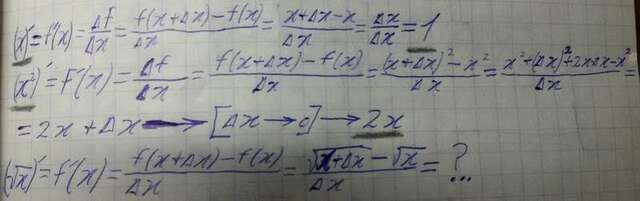 (x)' = f'(x) = Δf/Δx = (f(x+Δx)-f(x))/Δx = (x+Δx-x)/Δx = Δx/Δx = 1
(x²)' = f'(x) = Δf/Δx = (f(x+Δx)-f(x))/Δx = ((x+Δx)²-x²)/Δx = (x²+(Δx)²+2xΔx-x²)/Δx =
= 2x+Δx → [Δx→0] → 2x
(√x)' = f'(x) = (f(x+Δx)-f(x))/Δx = (√(x+Δx)-√x)/Δx = ?...